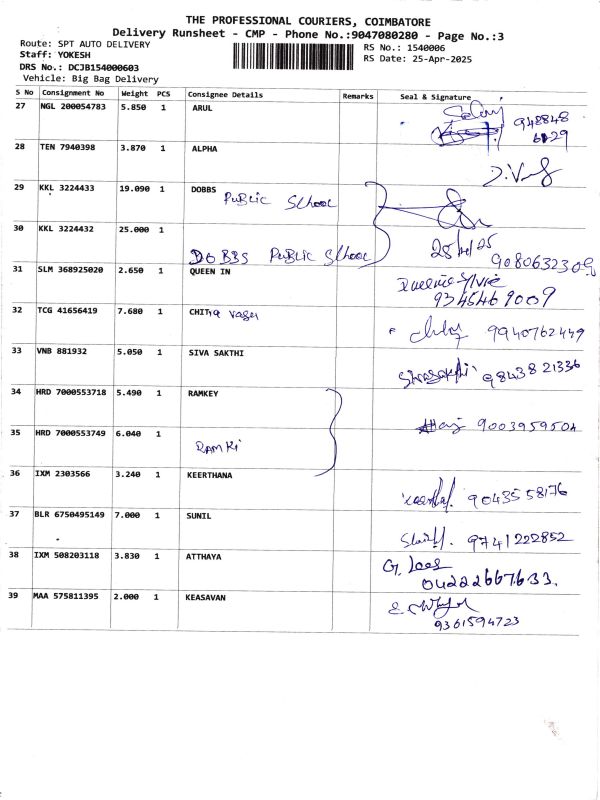 THE PROFESSIONAL COURIERS, COIMBATORE
Delivery Runsheet - CMP - Phone No.:9047080280 - Page No.:3
Route: SPT AUTO DELIVERY
RS No.: 1540006
Staff: YOKESH
RS Date: 25-Apr-2025
DRS No.: DCJB154000603
Vehicle: Big Bag Delivery
S No Consignment No Weight PCS Consignee Details Remarks Seal & Signature
27 NGL 200054783 5.850 1 ARUL
28 TEN 7940398 3.870 1 ALPHA
29 KKL 3224433 19.090 1 DOBBS
PUBLIC School
30 KKL 3224432 25.000 1
DOBBS PUBLIC School
9080632309
31 SLM 368925020 2.650 1 QUEEN IN
9345469009
32 TCG 41656419 7.680 1 CHITra vasu
9940762449
33 VNB 881932 5.050 1 SIVA SAKTHI
Sivasakthi 9843821336
34 HRD 7000553718 5.490 1 RAMKEY
9003959504
35 HRD 7000553749 6.040 1
RAMKI
36 IXM 2303566 3.240 1 KEERTHANA
9043558176
37 BLR 6750495149 7.000 1 SUNIL
9741222852
38 IXM 508203118 3.830 1 ATTHAYA
04222667633.
39 MAA 575811395 2.000 1 KEASAVAN
9361594723